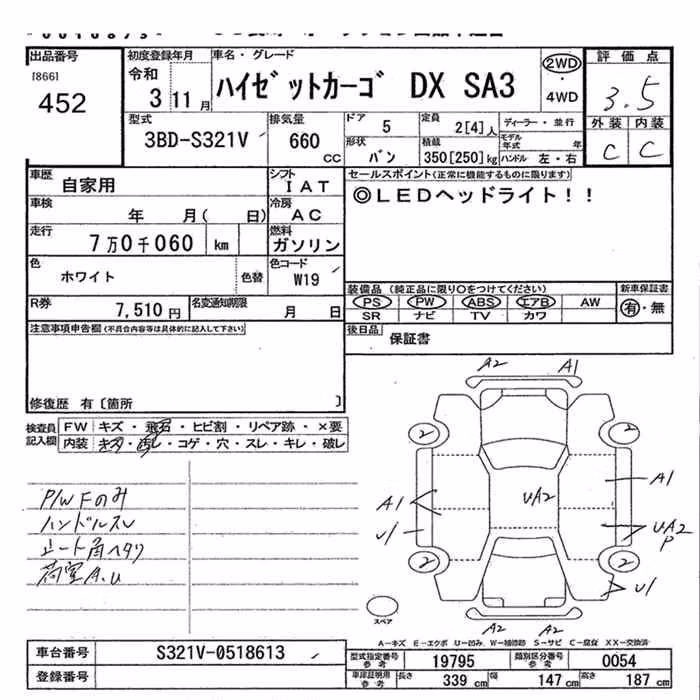 出品番号
[866]
452
初度登録年月
令和
3 11月
車名・グレード
ハイゼットカーゴ DX SA3
2WD
・
4WD
評価点
3.5
外装 内装
C C
型式
3BD-S321V
排気量
660 CC
ドア 5
定員 2[4]人
ディーラー・並行
形状 バン
積載 350[250]kg
モデル年式 年
ハンドル 左・右
車歴 自家用
シフト IAT
車検 年 月( 日)
冷房 AC
走行 7万0千060 km
燃料 ガソリン
色 ホワイト 色替
色コード W19
R券 7,510円
名変通知期限 月 日
セールスポイント(正常に機能するものに限ります)
◎LEDヘッドライト!!
装備品 (純正品に限り○をつけてください)
PS PW ABS エアB AW
SR ナビ TV カワ
新車保証書
有・無
後日品 保証書
注意事項申告欄(不具合内容等は具体的に記入して下さい)
修復歴 有〔箇所 〕
検査員記入欄
FW キズ・飛石・ヒビ割・リペア跡・×要
内装 キズ・汚レ・コゲ・穴・スレ・キレ・破レ
P/W Fのみ
ハンドルスレ
シート角ヘタリ
荷室A.U
A2 A1
2 2
A1 A1
U1 UA2 UA2
P
2 2
U1
A2 A2
スペア
A-キズ E-エクボ U-凹み W-補修跡 S-サビ C-腐食 XX-交換済
車台番号 S321V-0518613
登録番号
型式指定番号 参考 19795
類別区分番号 参考 0054
車庫証明用 参考
長さ 339 cm
幅 147 cm
高さ 187 cm